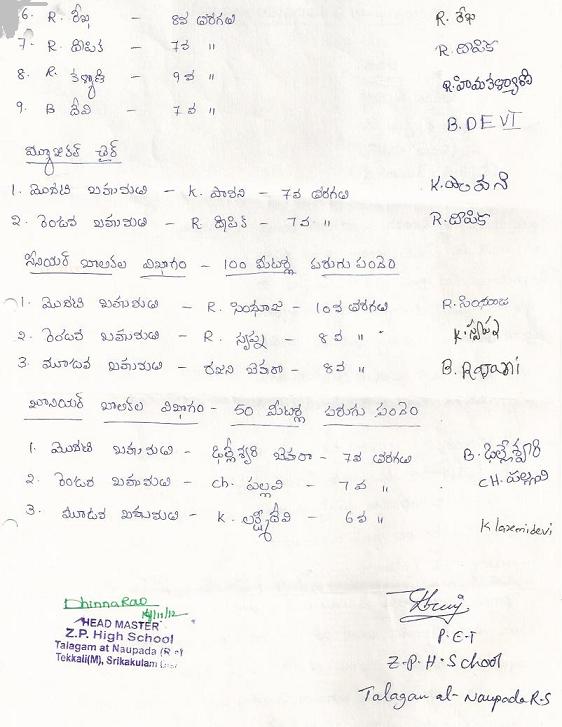 6. R. రేఖ - 8వ తరగతి R. రేఖ
7. R. దీపిక - 7వ " R. దీపిక
8. R. కళ్యాణి - 9వ " R. హిమకళ్యాణి
9. B దేవి - 7వ " B. DEVI
మ్యూజికల్ చైర్
1. మొదటి బహుమతి - K. పావని - 7వ తరగతి K. పావని
2. రెండవ బహుమతి - R. దీపిక - 7వ " R. దీపిక
సీనియర్ బాలికల విభాగం - 100 మీటర్ల పరుగు పందెం
1. మొదటి బహుమతి - R. సింధూజ - 10వ తరగతి R. సింధూజ
2. రెండవ బహుమతి - R. స్వప్న - 8వ " K. స్వప్న
3. మూడవ బహుమతి - రజని బెవరా - 8వ " B. Rajani
జూనియర్ బాలికల విభాగం - 50 మీటర్ల పరుగు పందెం
1. మొదటి బహుమతి - ఢిల్లీశ్వరి బెవరా - 7వ తరగతి B. ఢిల్లేశ్వరి
2. రెండవ బహుమతి - ch. పల్లవి - 7వ " CH. పల్లవి
3. మూడవ బహుమతి - K. లక్ష్మీదేవి - 6వ " K laxmidevi
Dhinna Rao
HEAD MASTER
Z.P. High School
Talagam at Naupada (R.S)
Tekkali(M), Srikakulam
P.E.T
Z.P.H.School
Talagam at- Naupada R.S